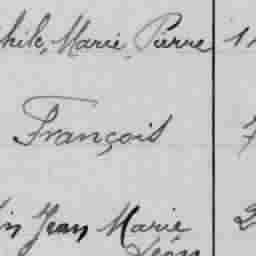 Marie, Pierre
François
Jean Marie
Léon